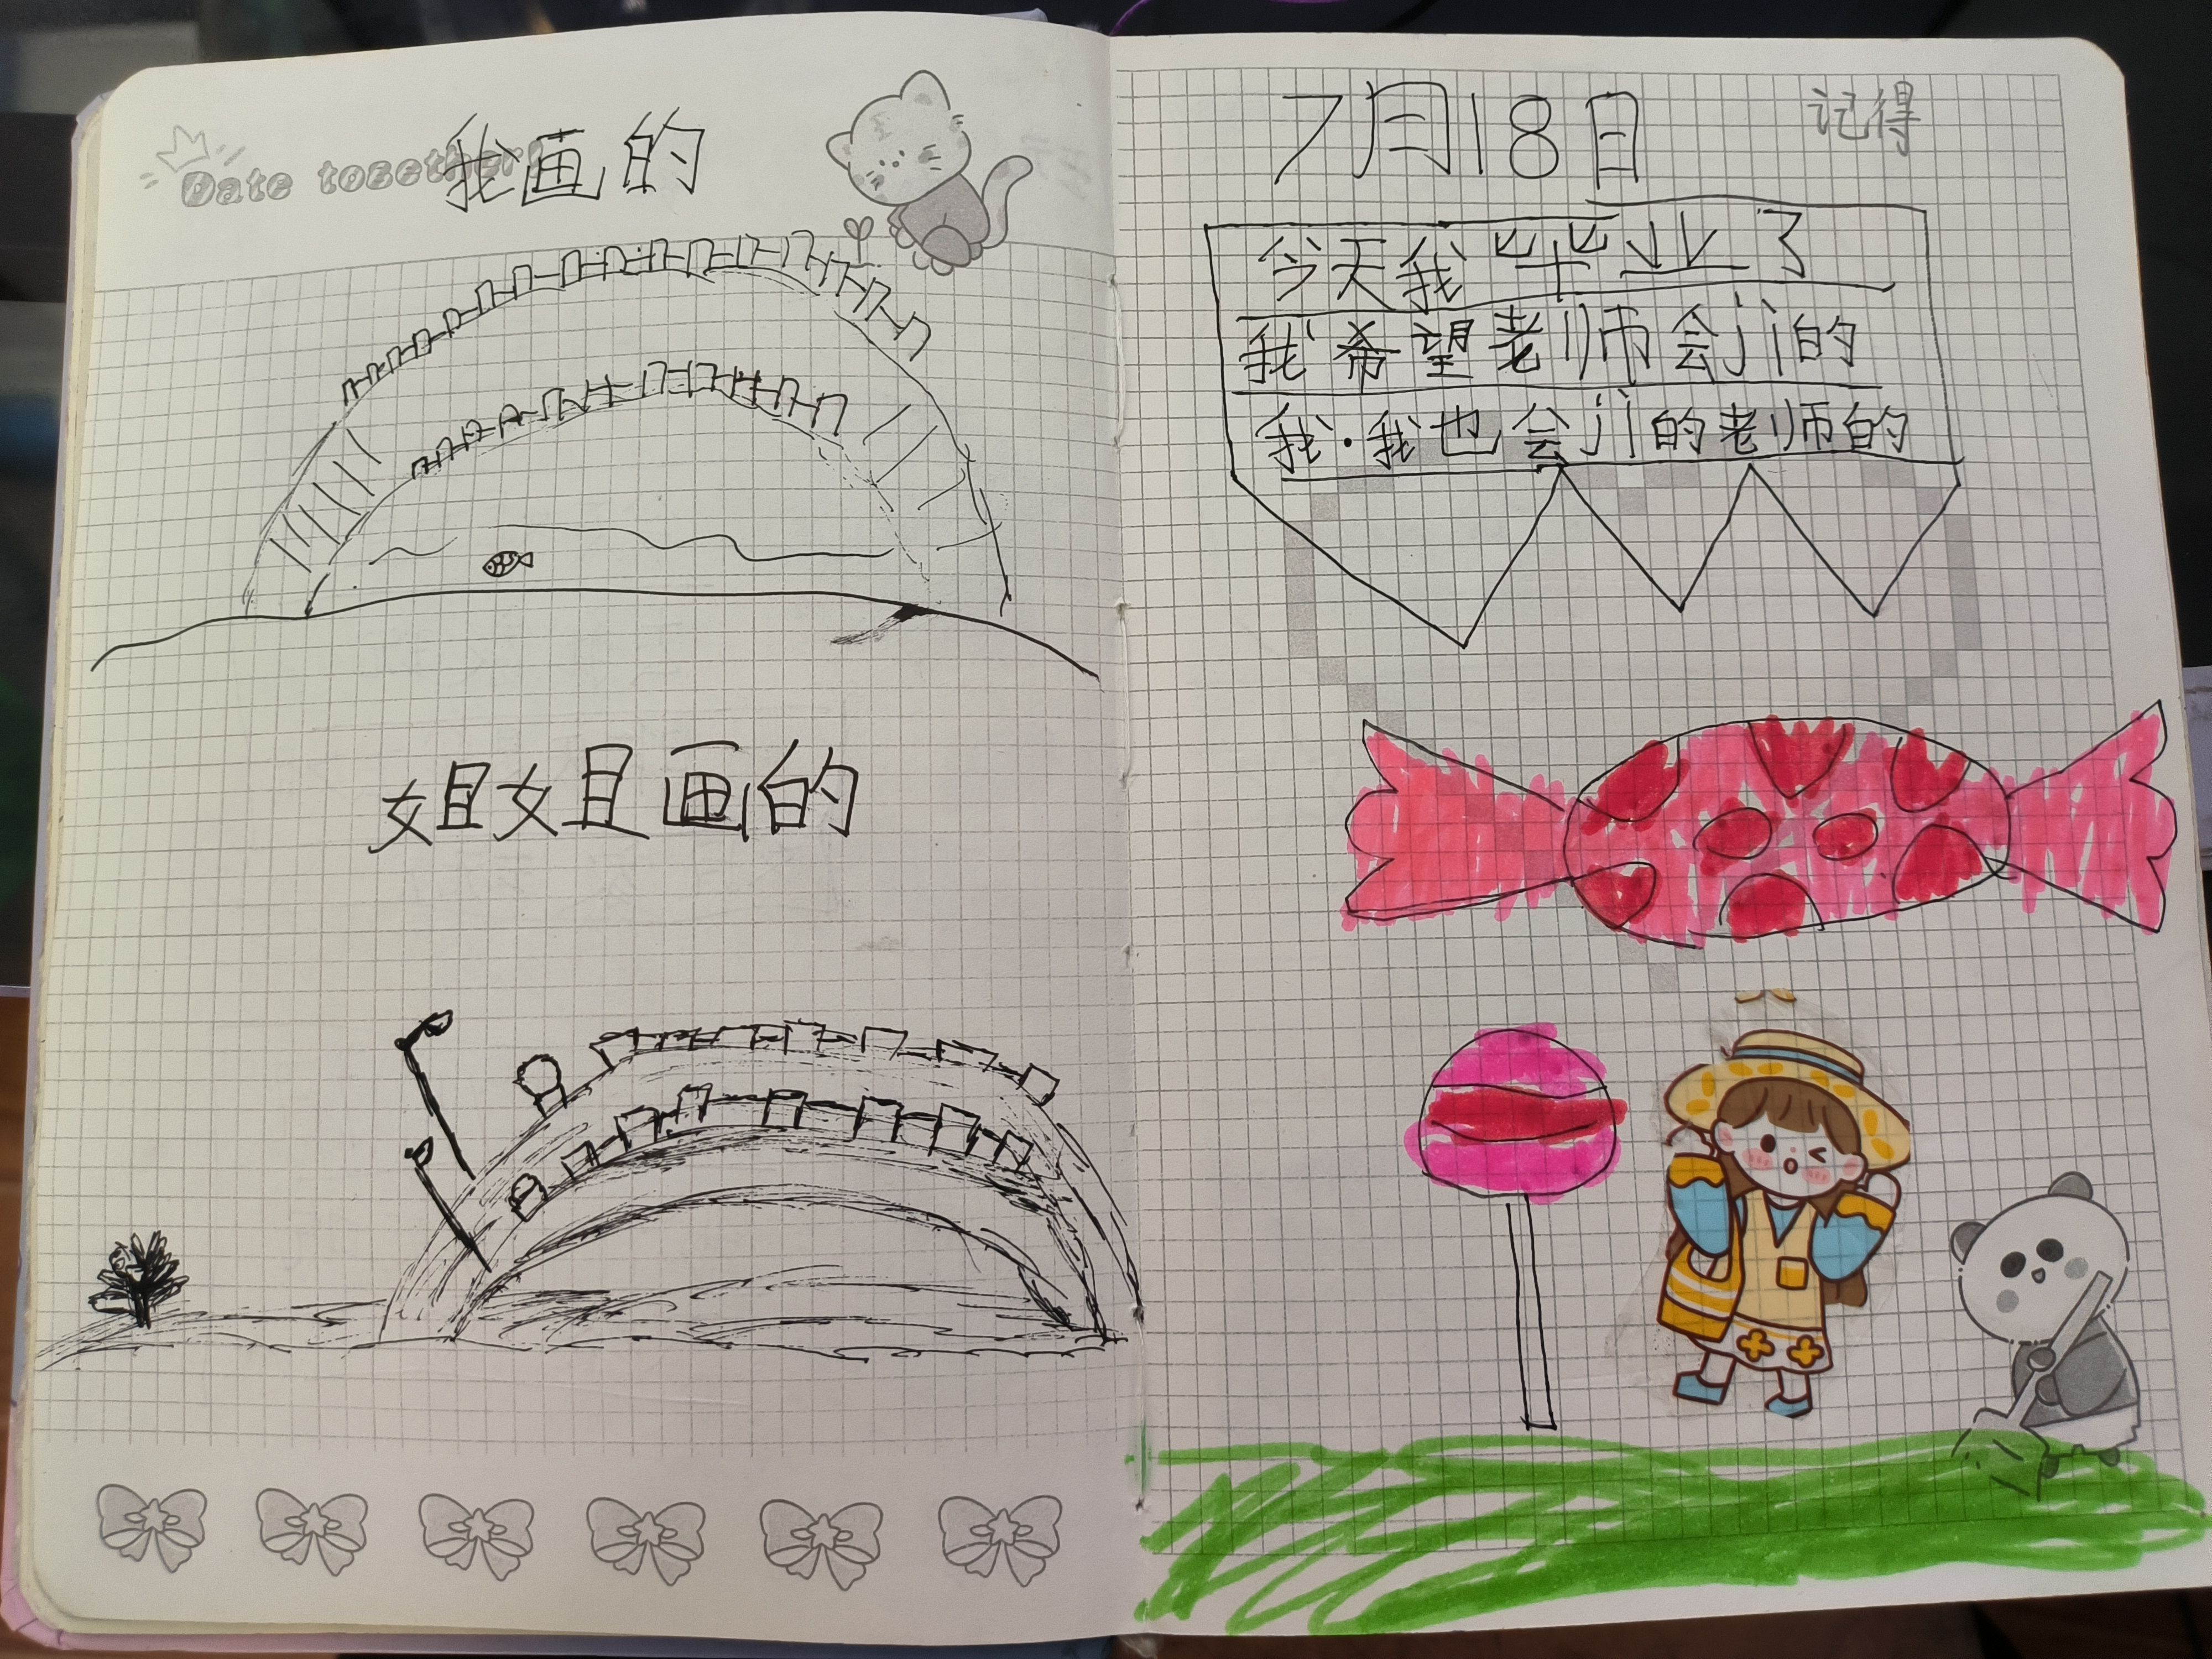 Date together!
我画的
姐姐画的
7月18日
记得
今天我毕业了
我希望老师会jì的
我.我也会jì的老师的